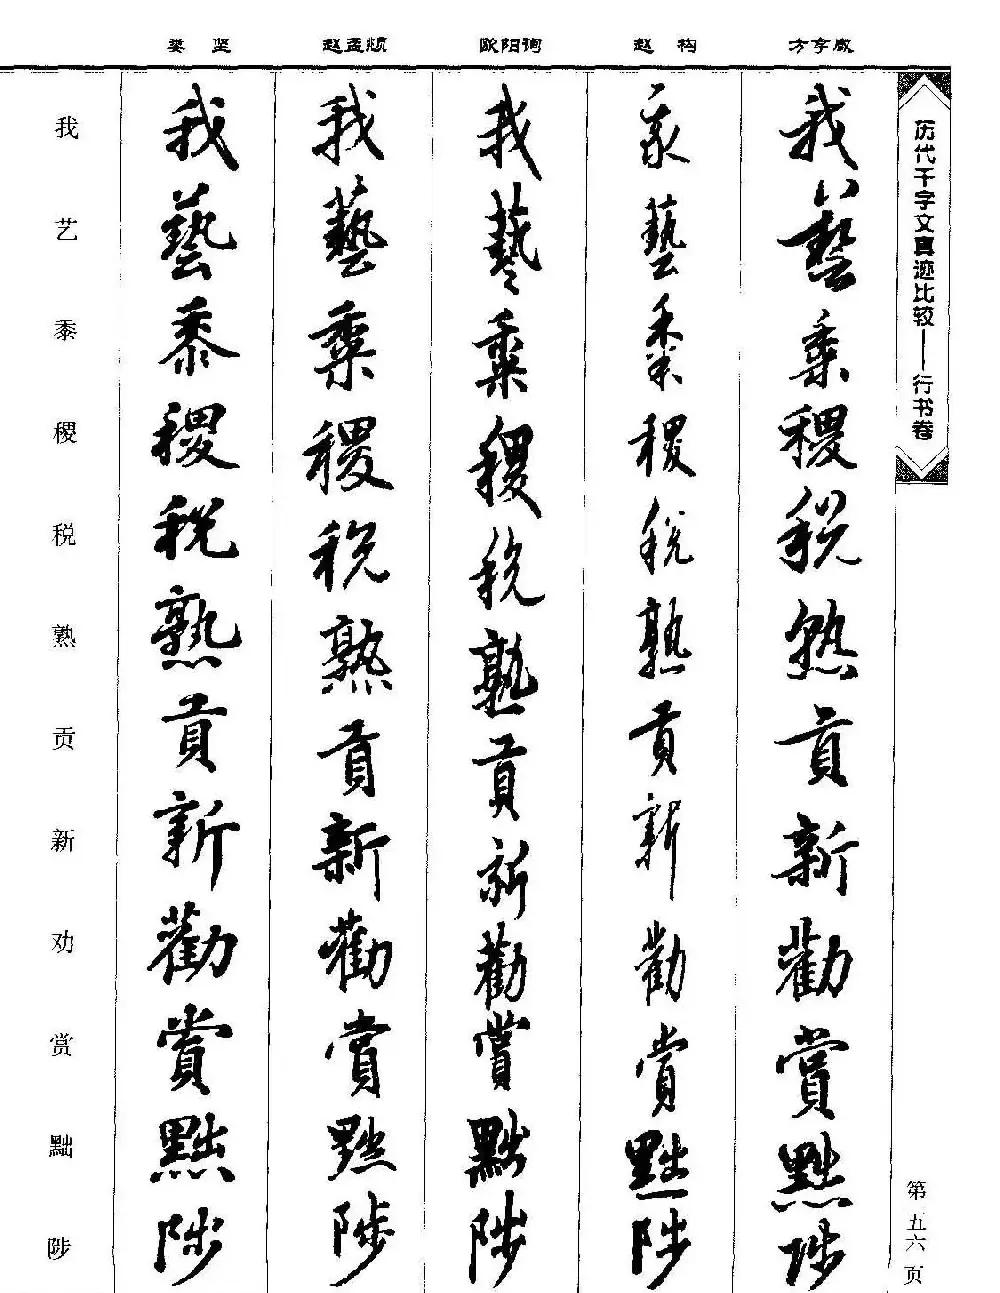 历代千字文真迹比较——行书卷
第五六页
方孝岳
我藝黍稷税熟貢新勸賞黜陟
赵构
我藝黍稷税熟貢新勸賞黜陟
欧阳询
我藝黍稷税熟貢新勸賞黜陟
赵孟頫
我藝黍稷税熟貢新勸賞黜陟
娄坚
我藝黍稷税熟貢新勸賞黜陟
我艺黍稷税熟贡新劝赏黜陟